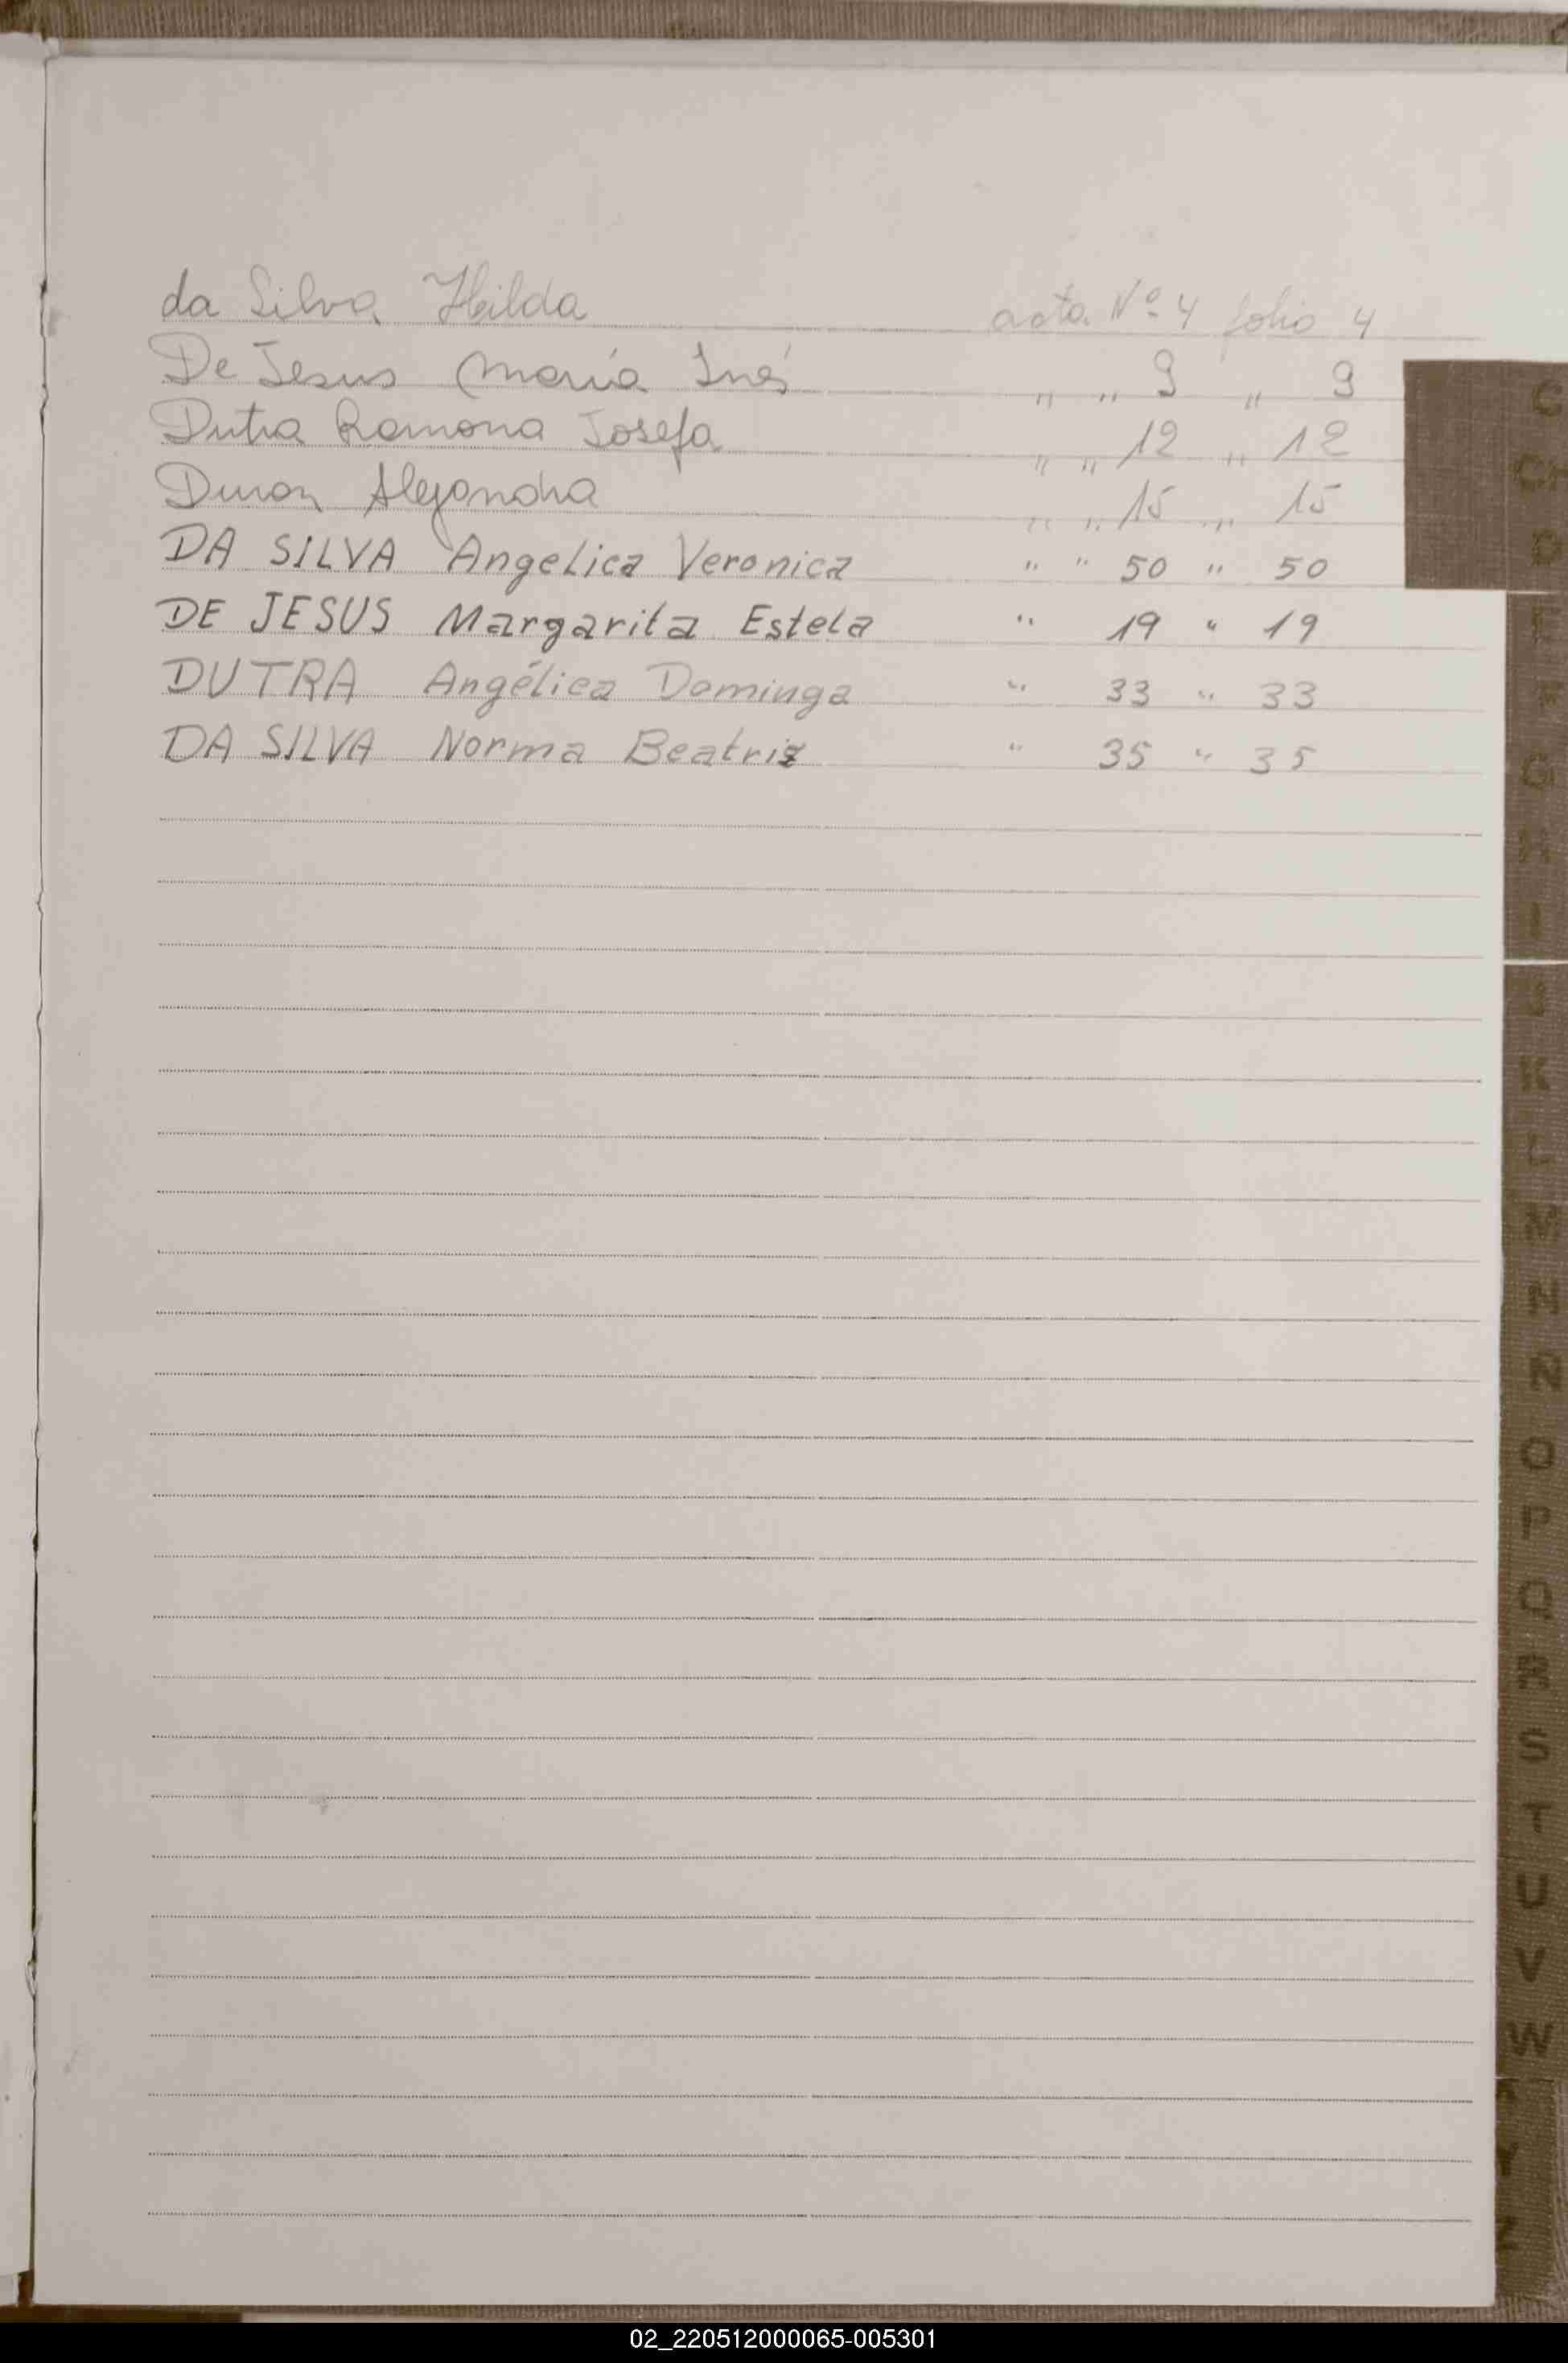 da Silva Hilda acta Nº 4 folio 4
De Jesus María Inés " " 9 " 9
Dutra Ramona Josefa " " 12 " 12
Duran Alejandra " " 15 " 15
DA SILVA Angelica Veronica " " 50 " 50
DE JESUS Margarita Estela " 19 " 19
DUTRA Angélica Dominga " 33 " 33
DA SILVA Norma Beatriz " 35 " 35
C
CH
D
E
F
G
H
I
J
K
L
M
N
Ñ
O
P
Q
R
S
T
U
V
W
Y
Z
02_220512000065-005301